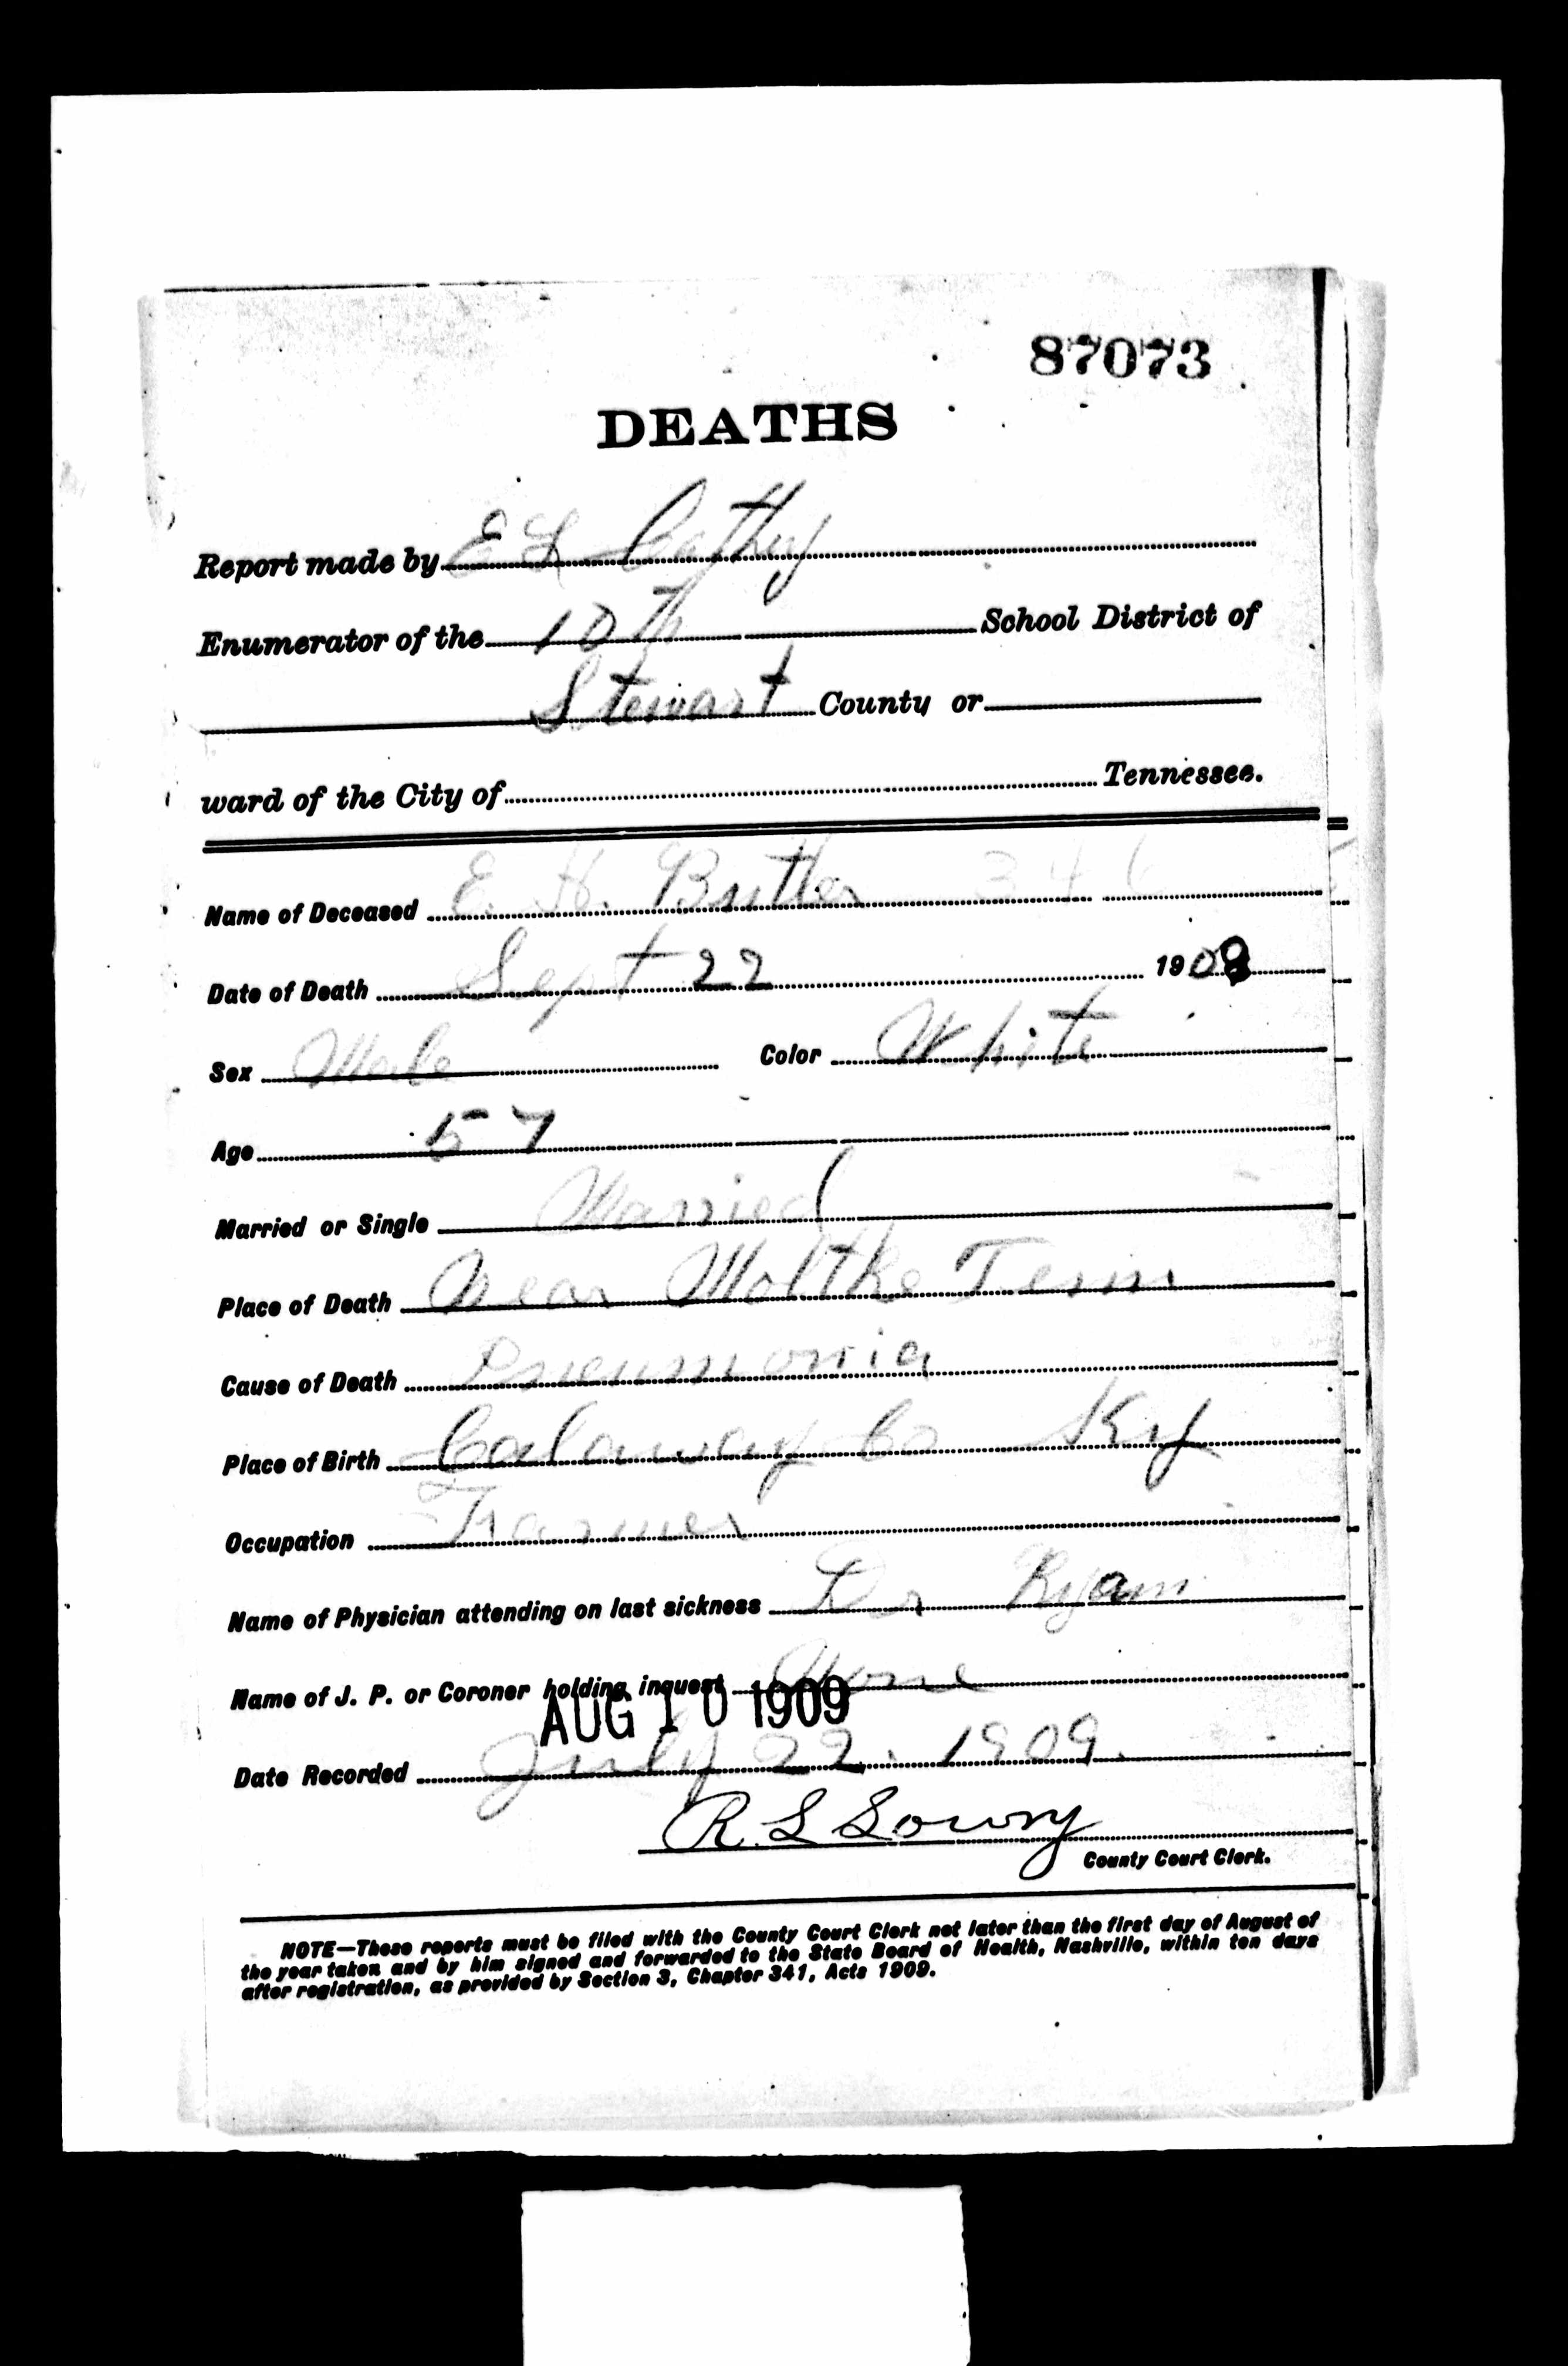 87073
DEATHS
Report made by E L Cathy
Enumerator of the 10th School District of
Stewart County or
ward of the City of Tennessee.
Name of Deceased E. H. Butler 346
Date of Death Sept 22 1908
Sex Male Color White
Age 57
Married or Single Married
Place of Death Near Moltke Tenn
Cause of Death Pneumonia
Place of Birth Calaway Co Ky
Occupation Farmer
Name of Physician attending on last sickness Dr Ryan
Name of J. P. or Coroner holding inquest None
AUG 10 1909
Date Recorded July 22. 1909.
R. L Lowry
County Court Clerk.
NOTE—These reports must be filed with the County Court Clerk not later than the first day of August of
the year taken and by him signed and forwarded to the State Board of Health, Nashville, within ten days
after registration, as provided by Section 3, Chapter 341, Acts 1909.